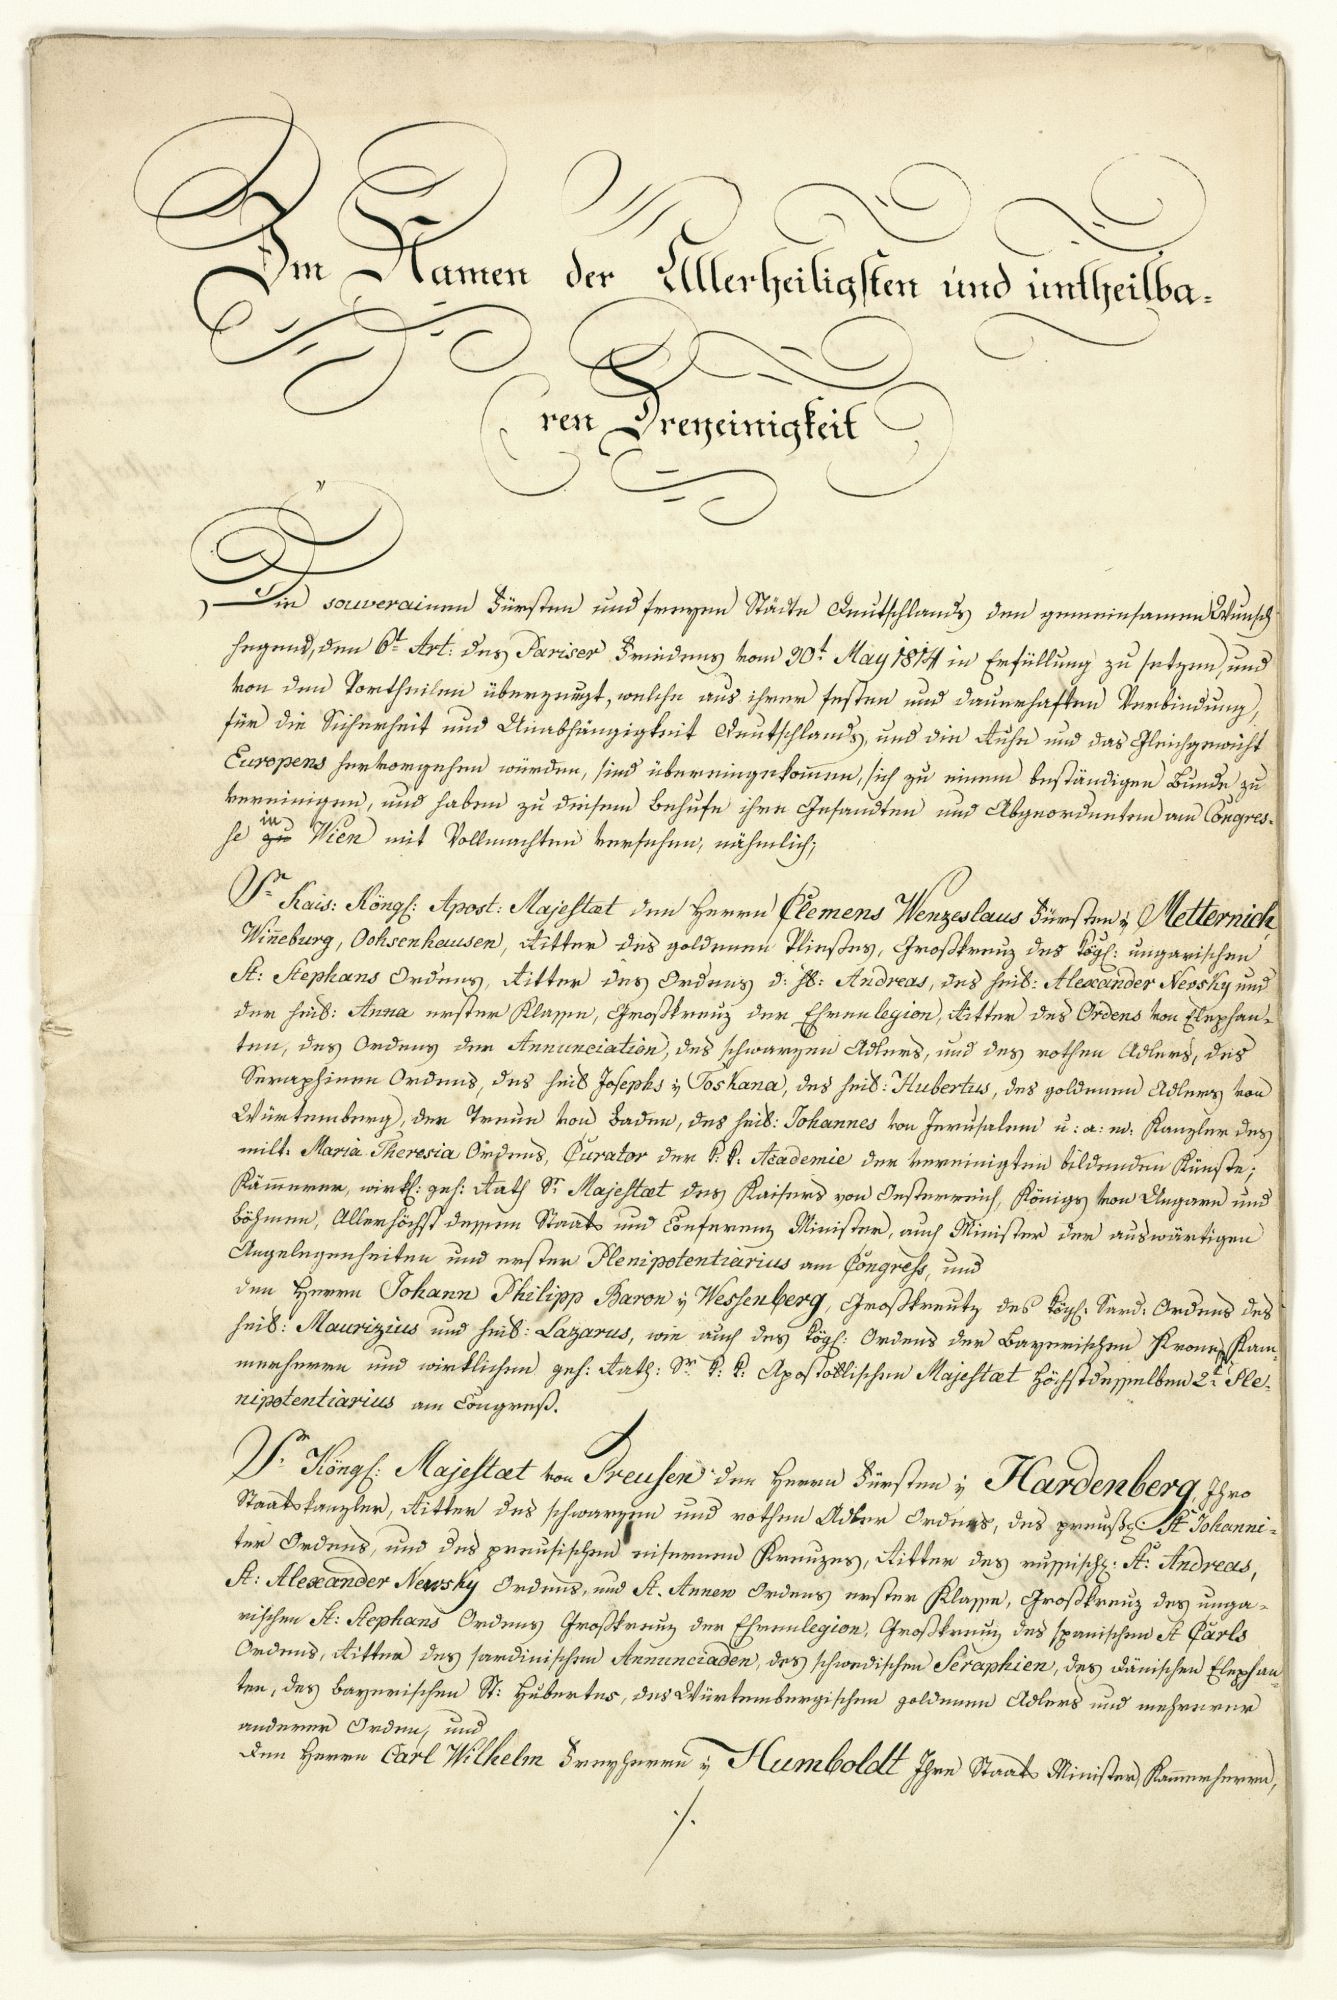 Im Namen der Allerheiligsten und untheilba-
ren Dreyeinigkeit
Die souverainen Fürsten und freyen Städte Deutschlands den gemeinsamen Wunsch
hegend, den 6t Art: des Pariser Friedens vom 30t May 1814 in Erfüllung zu setzen, und
von den Vortheilen überzeugt, welche aus ihrer festen und dauerhaften Verbindung,
für die Sicherheit und Unabhängigkeit Deutschlands, und die Ruhe und das Gleichgewicht
Europens hervorgehen würden, sind übereingekommen, sich zu einem beständigen Bunde zu
vereinigen, und haben zu diesem Behufe ihre Gesandten und Abgeordneten am Congres-
se in Wien mit Vollmachten versehen, nähmlich;
Sr Kais: Köngl: Apost: Majestæt den Herrn Clemens Wenzeslaus Fürsten v Metternich
Winneburg, Ochsenhausen, Ritter des goldenen Vließes, Großkreuz des kögl: ungarischen
St: Stephans Ordens, Ritter des Ordens d: h: Andreas, des heil: Alexander Nevsky und
der heil: Anna erster Klasse, Großkreuz der Ehrenlegion, Ritter des Ordens von Elephan-
ten, des Ordens der Annunciation, des schwarzen Adlers, und des rothen Adlers, des
Seraphinen Ordens, des heil Josephs v Toskana, des heil: Hubertus, des goldenen Adlers von
Würtemberg, der Treue von Baden, des heil: Johannes von Jerusalem u: a: m: Kanzler des
milt: Maria Theresia Ordens, Curator der k: k: Academie der vereinigten bildenden Künste;
Kämmerer, wirkl: geh: Rath Sr Majestæt des Kaisers von Oesterreich, Königs von Ungarn und
Böhmen, Allerhöchst dessen Staats und Conferenz Minister, auch Minister der auswärtigen
Angelegenheiten und erster Plenipotentiarius am Congress, und
den Herrn Johann Philipp Baron v Wessenberg, Großkreutz des kögl: Sard: Ordens des
heil: Maurizius und heil: Lazarus, wie auch des kögl: Ordens der Bayerischen Krone, Kam-
merherrn und wirklichen geh: Rath: Sr k: k: Apostollischen Majestæt Höchstdesselben 2t Ple-
nipotentiarius am Congreß.
Sr Köngl: Majestæt von Preusen den Herrn Fürsten v Hardenberg, Ihro
Staatskanzler, Ritter des schwarzen und rothen Adler Ordens, des preuß: St Johanni-
ter Ordens, und des preusischen eisernen Kreuzes, Ritter des russisch: St: Andreas,
St: Alexander Newsky Ordens, und St. Annen Ordens erster Klasse, Großkreuz des unga-
rischen St: Stephans Ordens Großkreuz der Ehrenlegion, Großkreuz des spanischen St Carls
Ordens, Ritter des sardinischen Annunciaden, des schwedischen Seraphien, des dänischen Elephan-
ten, des bayerischen St: Hubertus, des Würtembergischen goldenen Adlers und mehrerer
anderer Orden, und
den Herrn Carl Wilhelm Freyherrn v Humboldt Ihre Staats Minister, Kammerherrn,
./.